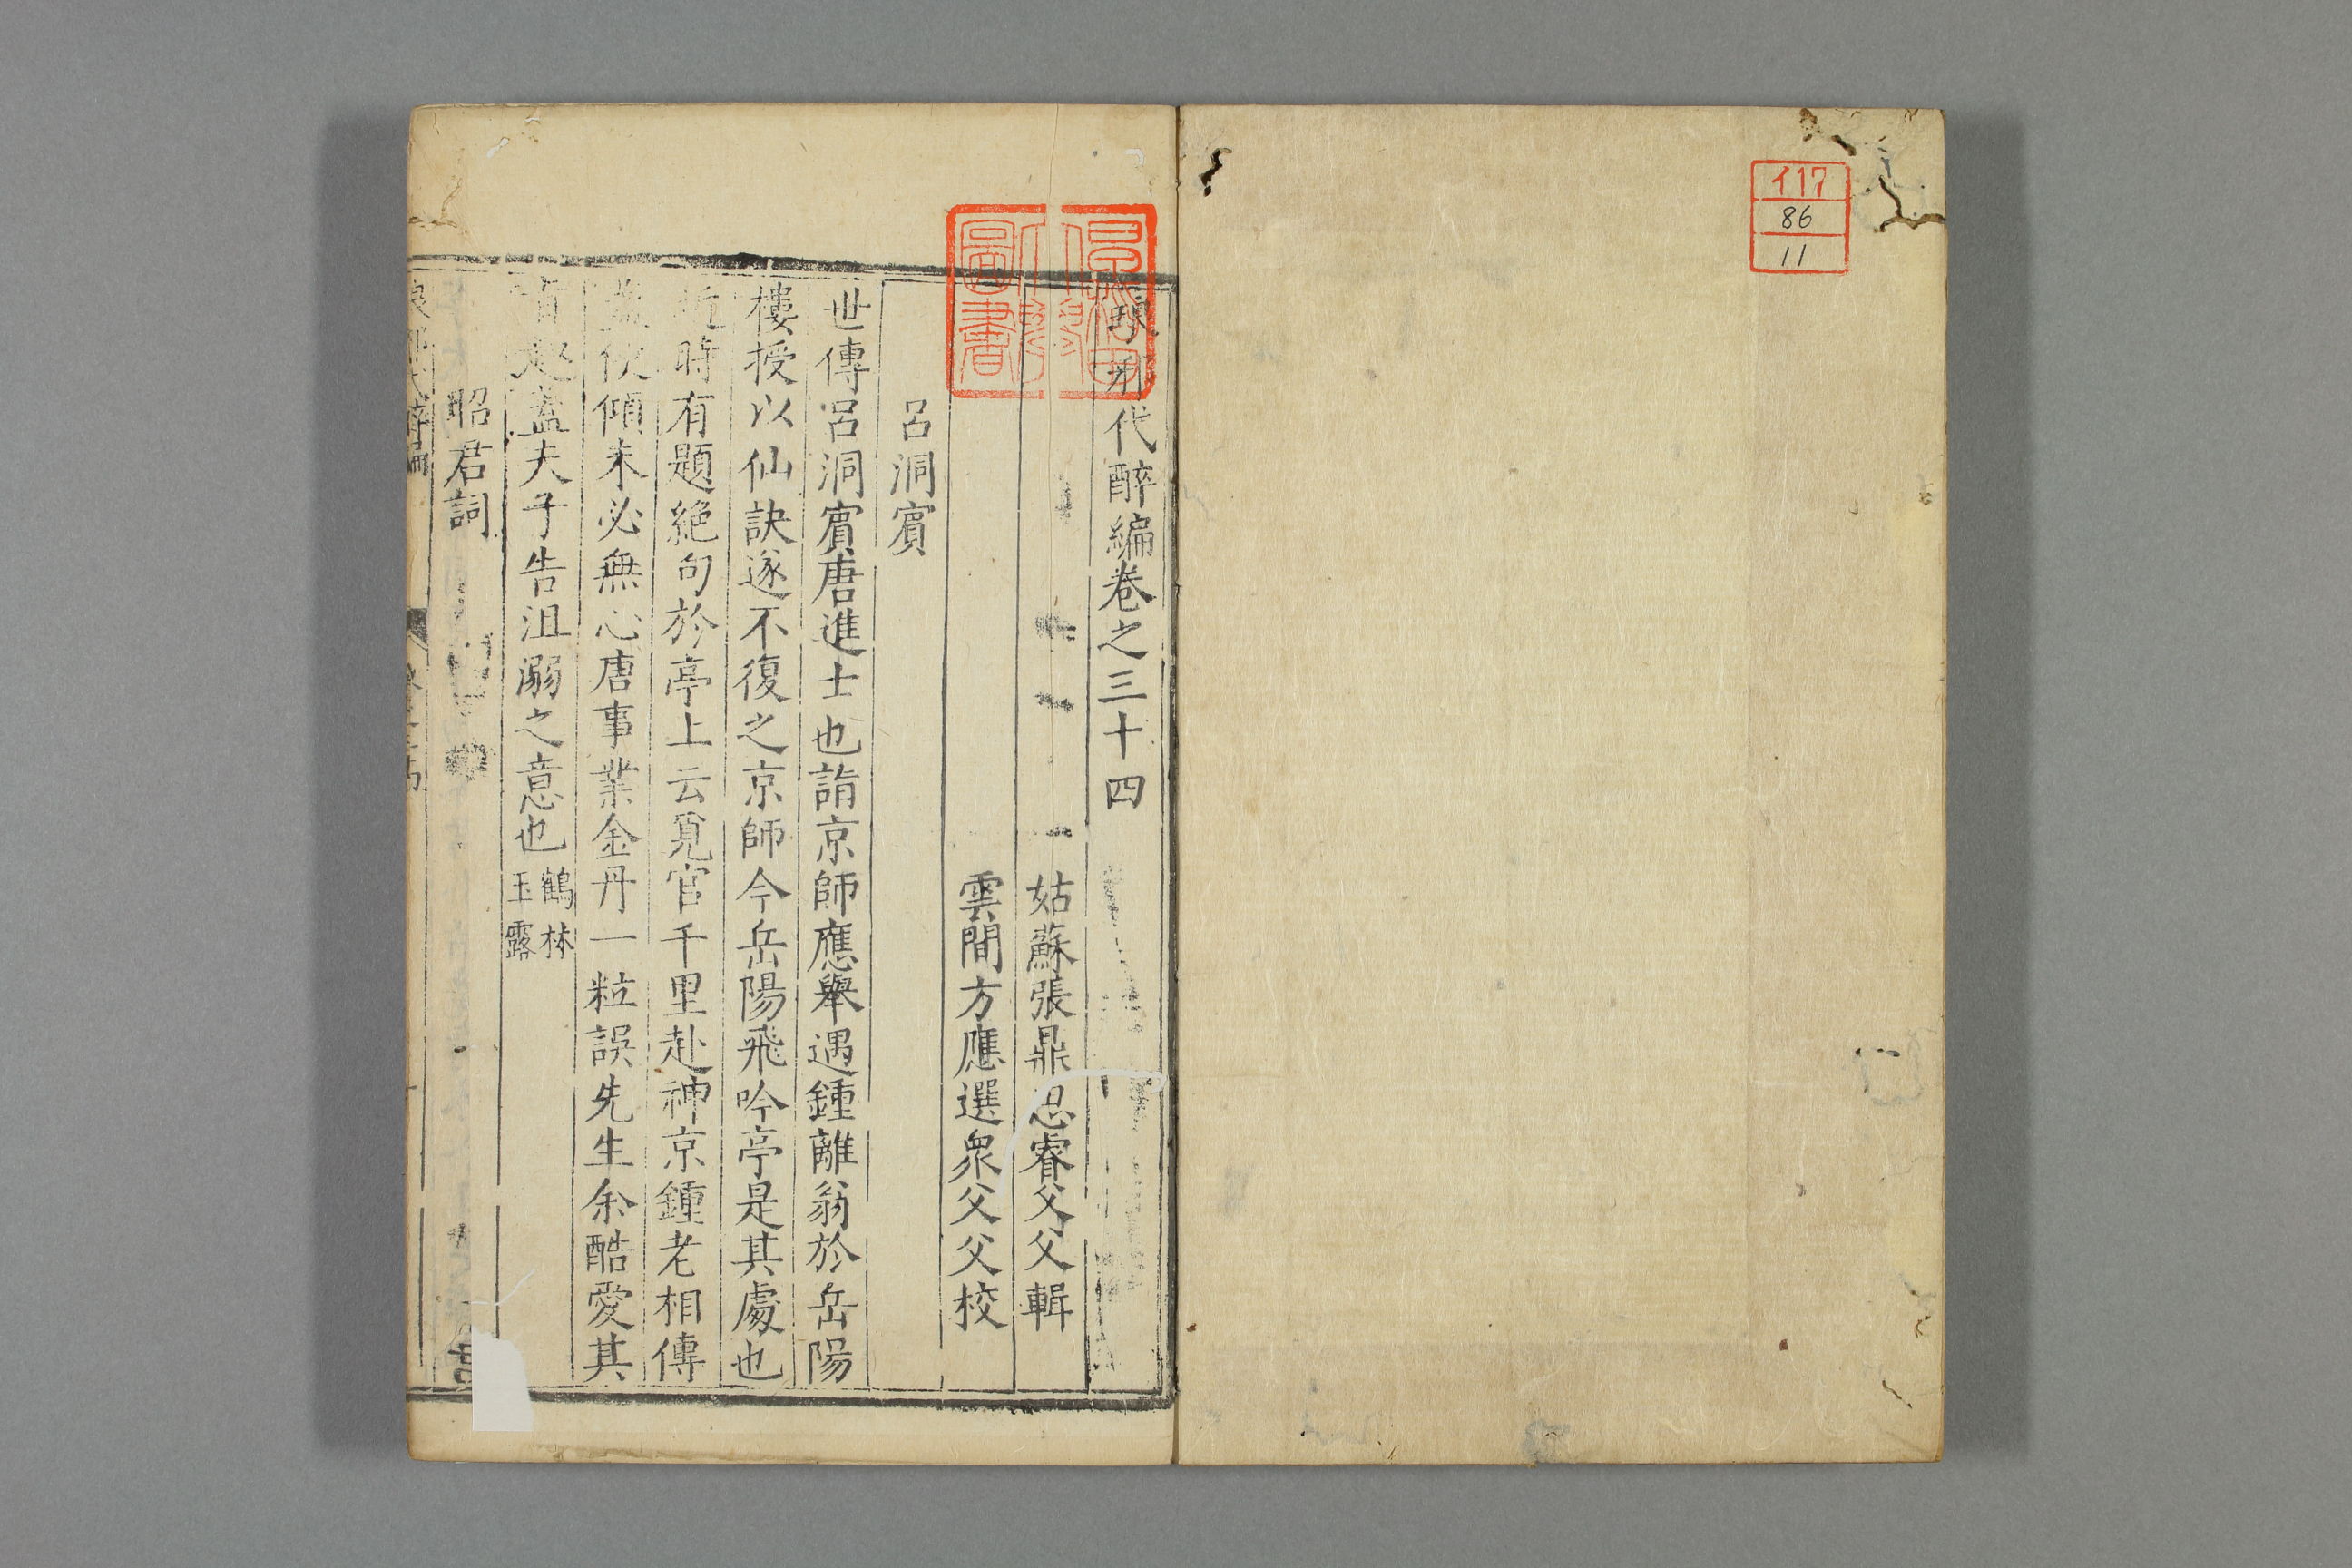 イ17
86
11
琅邪代醉編卷之三十四
姑蘇張鼎思睿父父輯
雲間方應選衆父父校
呂洞賓
世傳呂洞賓唐進士也詣京師應舉遇鍾離翁於岳陽
樓授以仙訣遂不復之京師今岳陽飛吟亭是其處也
近時有題絶句於亭上云覓官千里赴神京鍾老相傳
蓋便傾未必無心唐事業金丹一粒誤先生余酷愛其
旨趣蓋夫子告沮溺之意也鶴林玉露
昭君詞